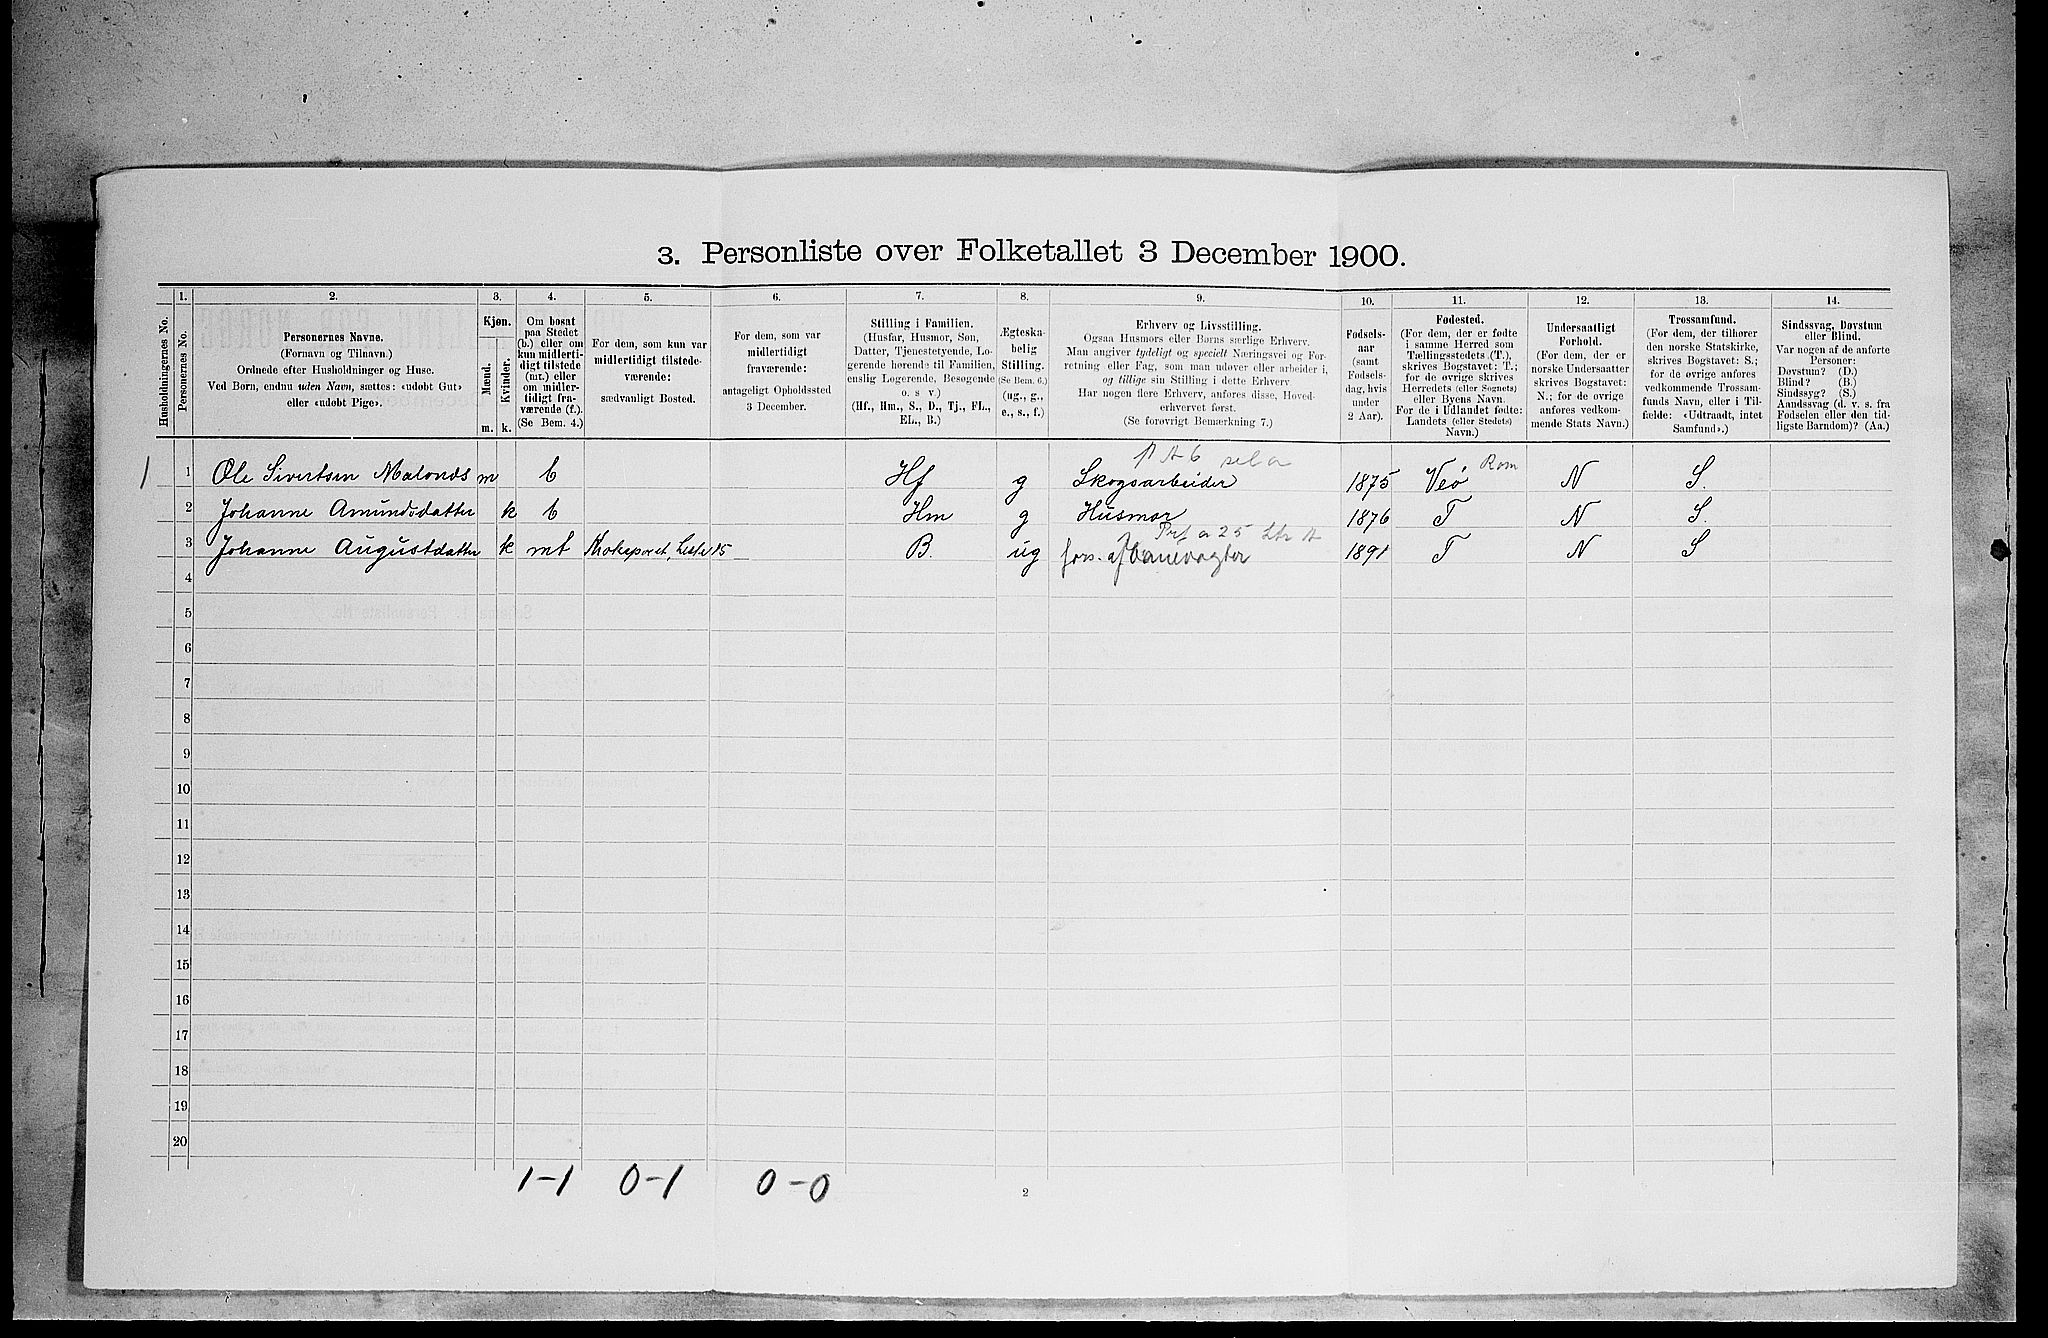 3. Personliste over Folketallet 3 December 1900.
Husholdningernes No.
1.
Personernes No.
2.
Personernes Navne.
(Fornavn og Tilnavn.)
Ordnede efter Husholdninger og Huse.
Ved Børn, endnu uden Navn, sættes: «udøbt Gut»
eller «udøbt Pige».
3.
Kjøn.
Mænd.
Kvinder.
m. k.
4.
Om bosat
paa Stedet
(b.) eller om
kun midlerti-
digt tilstede
(mt.) eller
om midler-
tidigt fra-
værende (f.).
(Se Bem. 4.)
5.
For dem, som kun var
midlertidigt tilstede-
værende:
sædvanligt Bosted.
6.
For dem, som var
midlertidigt
fraværende:
antageligt Opholdssted
3 December.
7.
Stilling i Familien.
(Husfar, Husmor, Søn,
Datter, Tjenestetyende, Lo-
gerende hørende til Familien,
enslig Logerende, Besøgende
o. s v.)
(Hf., Hm., S., D., Tj., FL.,
EL., B.)
8.
Ægteska-
belig
Stilling.
(Se Bem. 6.)
(ug., g.,
e., s., f.)
9.
Erhverv og Livsstilling.
Ogsaa Husmors eller Børns særlige Erhverv.
Man angiver tydeligt og specielt Næringsvei og For-
retning eller Fag, som man udøver eller arbeider i,
og tillige sin Stilling i dette Erhverv.
Har nogen flere Erhverv, anføres disse, Hoved-
erhvervet først.
(Se forøvrigt Bemærkning 7.)
10.
Fødsels-
aar
(samt
Fødsels-
dag, hvis
under
2 Aar).
11.
Fødested.
(For dem, der er fødte
i samme Herred som
Tællingsstedets (T.),
skrives Bogstavet: T.;
for de øvrige skrives
Herredets (eller Sognets)
eller Byens Navn.
For de i Udlandet fødte:
Landets (eller Stedets)
Navn.)
12.
Undersaatligt
Forhold.
(For dem, der er
norske Undersaatter
skrives Bogstavet:
N.; for de øvrige
anføres vedkom-
mende Stats Navn.)
13.
Trossamfund.
(For dem, der tilhører
den norske Statskirke,
skrives Bogstavet: S.;
for de øvrige anføres
vedkommende Trossam-
funds Navn, eller i Til-
fælde: «Udtraadt, intet
Samfund».)
14.
Sindssvag, Døvstum
eller Blind.
Var nogen af de anførte
Personer:
Døvstum? (D.)
Blind? (B.)
Sindssyg? (S.)
Aandssvag (d. v. s. fra
Fødselen eller den tid-
ligste Barndom)? (Aa.)
1 1 Ole Sivertsen m b Hf g Skogsarbeider 1875 Veø Rom N S.
2 Johanne Amundsdatter k b Hm g Husmor 1876 T N S.
3 Johanne Augustdatter k mt B. ug fors. af banevogter 1891 T N S
4
5
6
7
8
9
10
11
12
13
14
15
16
17
18
19
20
1-1 0-1 0-0
2